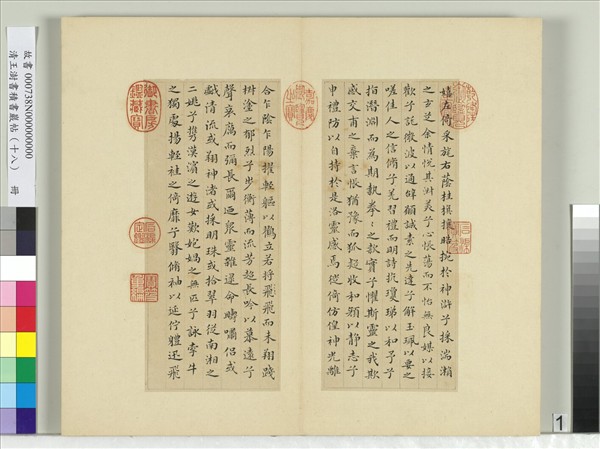 嬉左倚采旄右蔭桂旗攘皓捥於神滸兮採湍瀨
之玄芝余情悅其淑美兮心悵蕩而不怡無良媒以接
歡兮託微波以通辭願誠素之先達兮解玉珮以要之
嗟佳人之信脩兮羌習禮而明詩抗瓊珶以和予兮
指潛淵而為期執拳拳之款實兮懼斯靈之我欺
感交甫之棄言悵猶豫而狐疑收和顏以靜志兮
申禮防以自持於是洛靈感焉徙倚仿偟神光離
嘉慶御覽之寶
合乍陰乍陽擢輕軀以鶴立若將飛而未翔踐
樹塗之郁烈兮步衡薄而流芳超長吟以慕遠兮
聲哀厲而彌長爾迺眾靈雜遝命疇嘯侶或
戲清流或翔神渚或採明珠或拾翠羽從南湘之
二姚兮攜漢濱之遊女歎妃媧之無匹兮詠牽牛
之獨處揚輕袿之倚靡兮翳脩袖以延佇體迅飛
故書 000738N000000000
清王澍書積書巖帖(十八) 冊
1